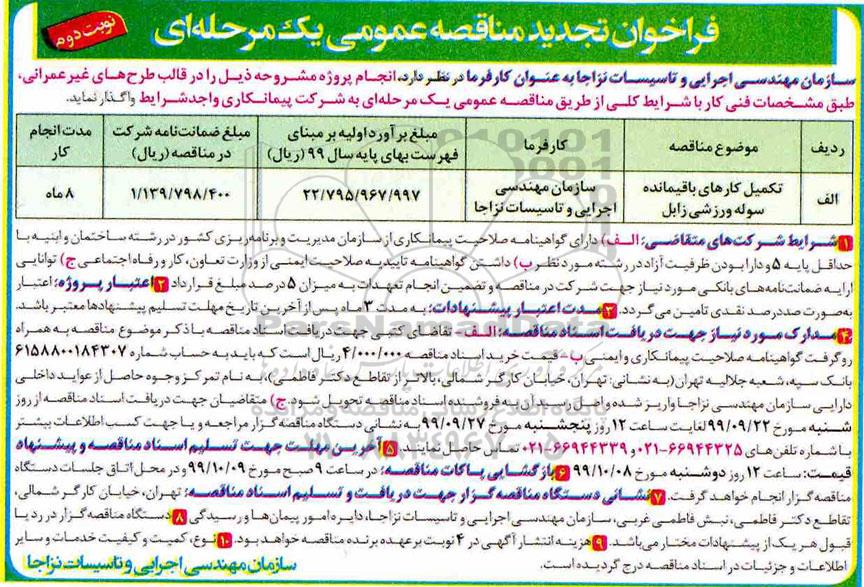 فراخوان تجدید مناقصه عمومی یک مرحله‌ای
نوبت دوم
سازمان مهندسی اجرایی و تاسیسات نزاجا به عنوان کارفرما در نظر دارد، انجام پروژه مشروحه ذیل را در قالب طرح‌های غیر عمرانی،
طبق مشخصات فنی کار با شرایط کلی از طریق مناقصه عمومی یک مرحله‌ای به شرکت پیمانکاری واجد شرایط واگذار نماید.
ردیف موضوع مناقصه کارفرما مبلغ برآورد اولیه بر مبنای فهرست بهای پایه سال ۹۹ (ریال) مبلغ ضمانت‌نامه شرکت در مناقصه (ریال) مدت انجام کار
الف تکمیل کارهای باقیمانده سوله ورزشی زابل سازمان مهندسی اجرایی و تاسیسات نزاجا ۲۲/۷۹۵/۹۶۷/۹۹۷ ۱/۱۳۹/۷۹۸/۴۰۰ ۸ ماه
۱ شرایط شرکت‌های متقاضی: الف) دارای گواهینامه صلاحیت پیمانکاری از سازمان مدیریت و برنامه‌ریزی کشور در رشته ساختمان و ابنیه با
حداقل پایه ۵ و دارا بودن ظرفیت آزاد در رشته مورد نظر ب) داشتن گواهینامه تاییدیه صلاحیت ایمنی از وزارت تعاون، کار و رفاه اجتماعی ج) توانایی
ارایه ضمانت‌نامه‌های بانکی مورد نیاز جهت شرکت در مناقصه و تضمین انجام تعهدات به میزان ۵ درصد مبلغ قرارداد ۲ اعتبار پروژه: اعتبار
به‌صورت صددرصد نقدی تامین می‌گردد. ۳ مدت اعتبار پیشنهادات: به مدت ۳ ماه پس از آخرین تاریخ مهلت تسلیم پیشنهادها معتبر باشد.
۴ مدارک مورد نیاز جهت دریافت اسناد مناقصه: الف - تقاضای کتبی جهت دریافت اسناد مناقصه با ذکر موضوع مناقصه به همراه
رو گرفت گواهینامه صلاحیت پیمانکاری و ایمنی ب - قیمت خرید اسناد مناقصه ۴/۰۰۰/۰۰۰ ریال است که باید به حساب شماره ۶۱۵۸۸۰۰۱۸۴۳۰۷
بانک سپه، شعبه جلالیه تهران (به نشانی: تهران، خیابان کارگر شمالی، بالاتر از تقاطع دکتر فاطمی)، به نام تمرکز وجوه حاصل از عواید داخلی
دارایی سازمان مهندسی نزاجا واریز شده و اصل رسید آن به فروشنده اسناد مناقصه تحویل شود. ج) متقاضیان جهت دریافت اسناد مناقصه از روز
شنبه مورخ ۹۹/۰۹/۲۲ لغایت ساعت ۱۲ روز پنجشنبه مورخ ۹۹/۰۹/۲۷ به نشانی دستگاه مناقصه گزار مراجعه و یا جهت کسب اطلاعات بیشتر
با شماره تلفن‌های ۶۶۹۴۴۳۲۵-۰۲۱ و ۶۶۹۴۴۳۳۹-۰۲۱ تماس حاصل نمایند. ۵ آخرین مهلت جهت تسلیم اسناد مناقصه و پیشنهاد
قیمت: ساعت ۱۲ روز دوشنبه مورخ ۹۹/۱۰/۰۸ ۶ بازگشایی پاکات مناقصه: در ساعت ۹ صبح مورخ ۹۹/۱۰/۰۹ و در محل اتاق جلسات دستگاه
مناقصه گزار انجام خواهد گرفت. ۷ نشانی دستگاه مناقصه گزار جهت دریافت و تسلیم اسناد مناقصه: تهران، خیابان کارگر شمالی،
تقاطع دکتر فاطمی، نبش فاطمی غربی، سازمان مهندسی اجرایی و تاسیسات نزاجا، دایره امور پیمان‌ها و رسیدگی ۸ دستگاه مناقصه گزار در رد یا
قبول هر یک از پیشنهادات مختار می‌باشد. ۹ هزینه انتشار آگهی در ۴ نوبت بر عهده برنده مناقصه خواهد بود. ۱۰ نوع، کمیت و کیفیت خدمات و سایر
اطلاعات و جزئیات در اسناد مناقصه درج گردیده است.
سازمان مهندسی اجرایی و تاسیسات نزاجا
ParsNamadData